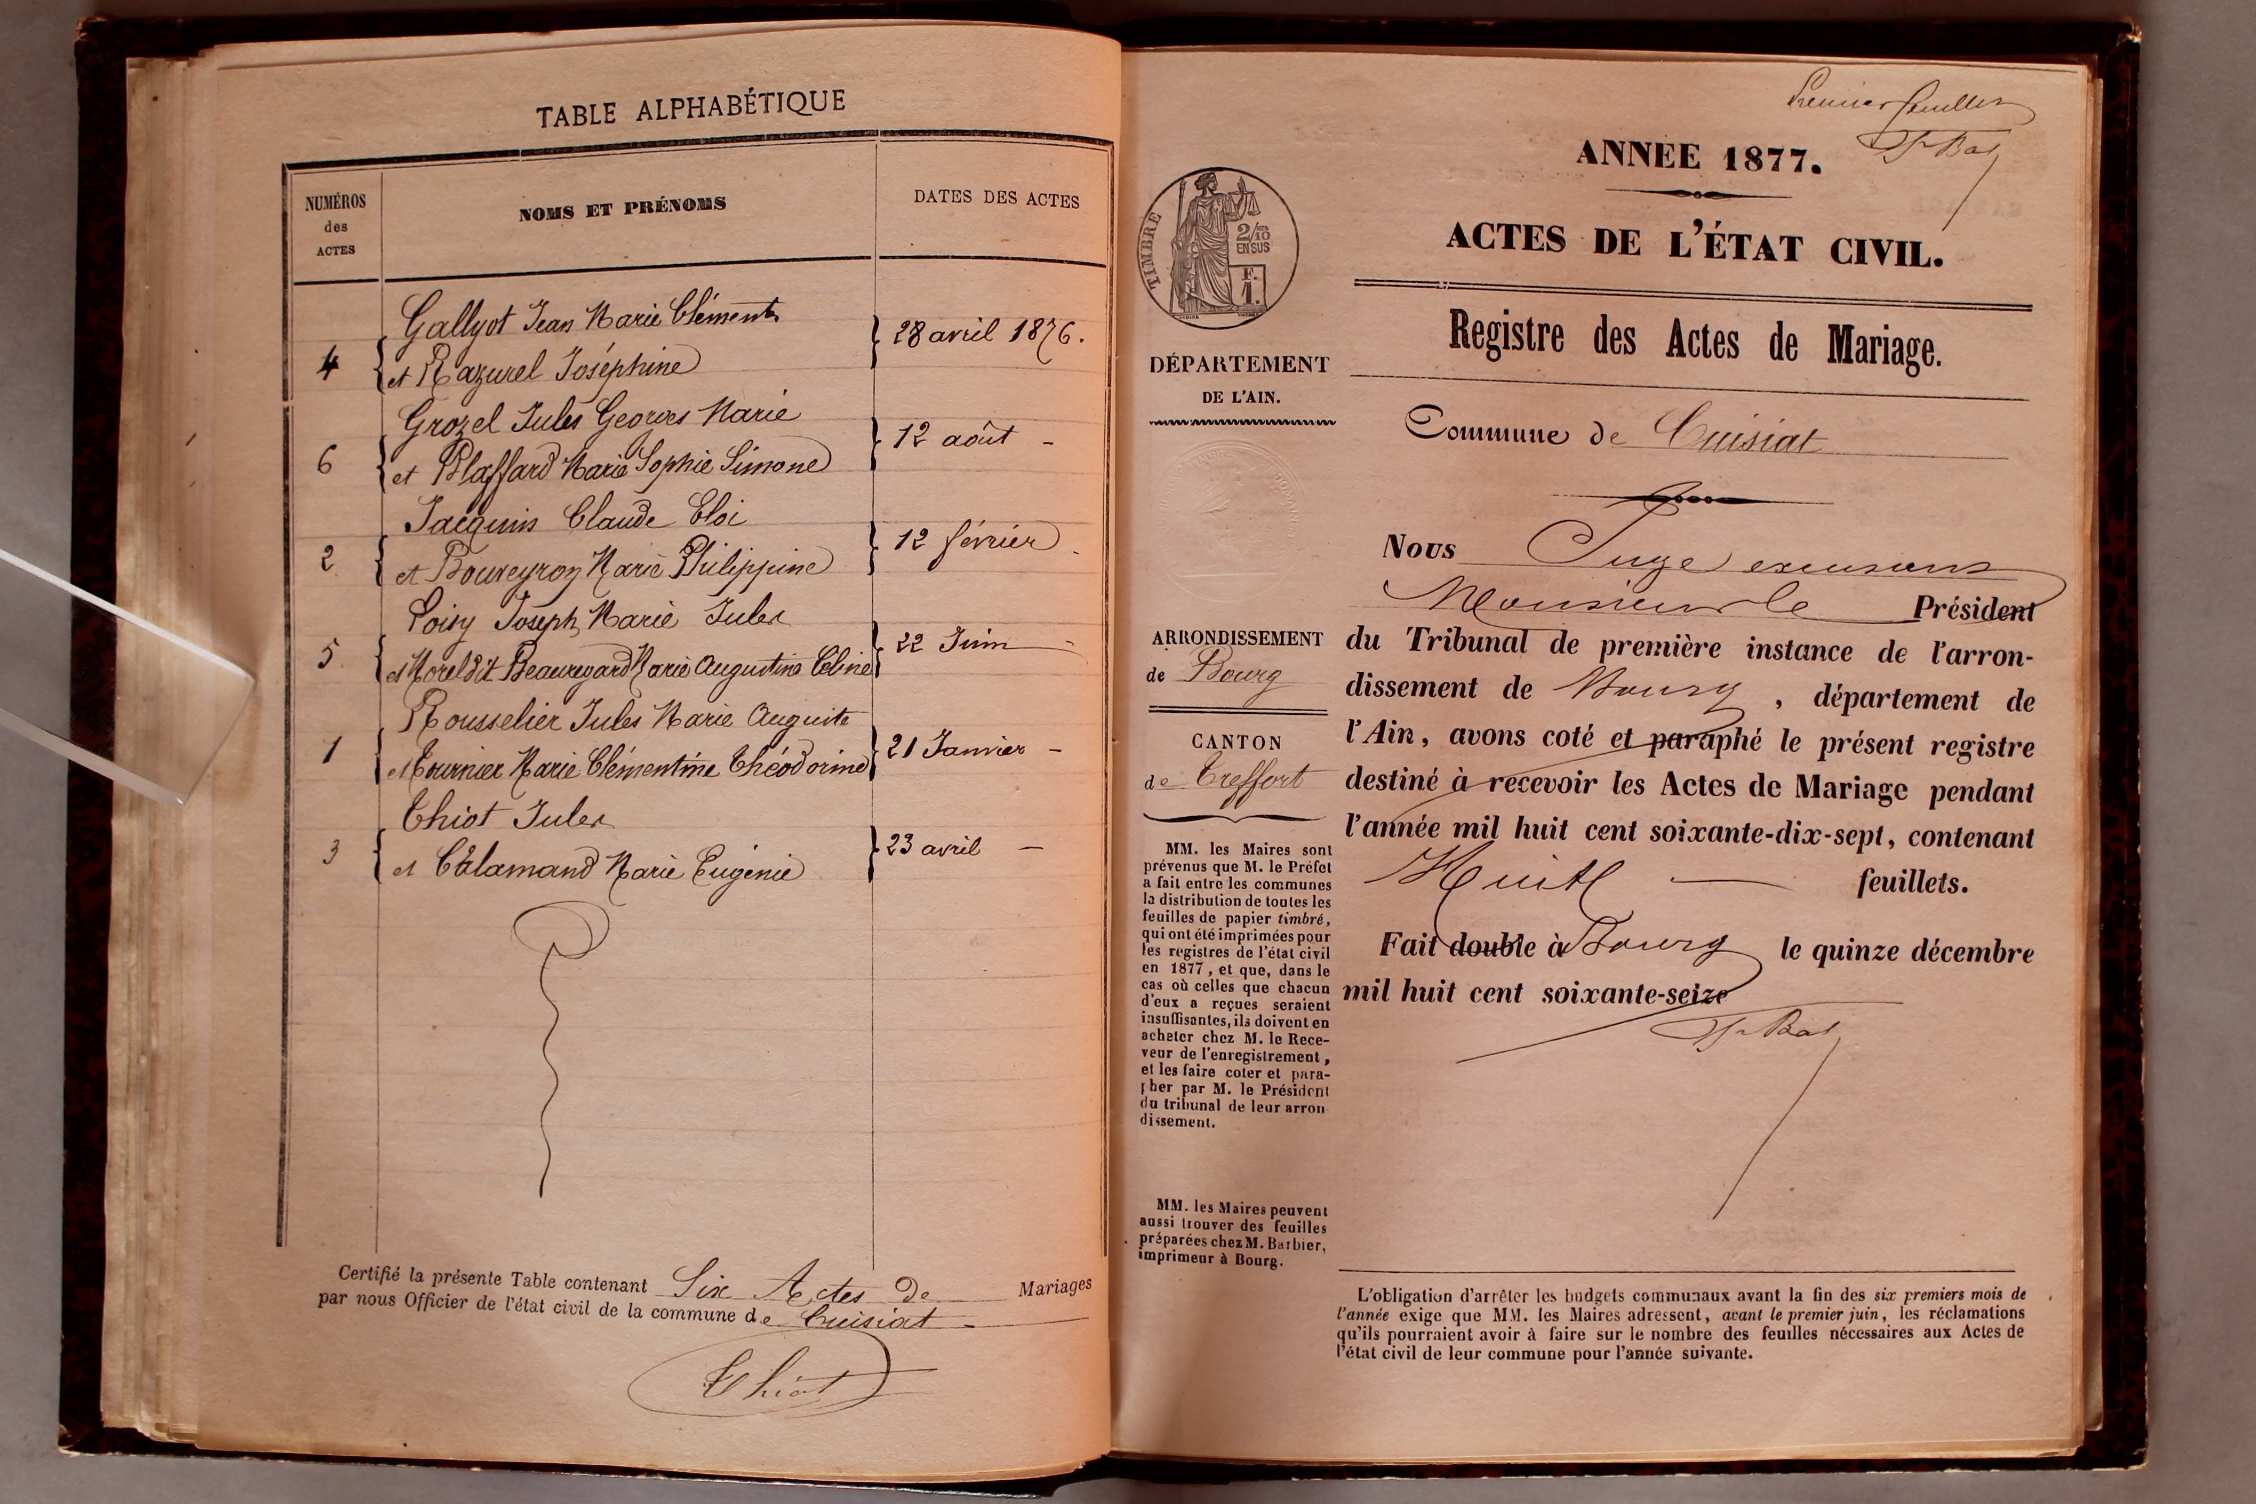 TABLE ALPHABÉTIQUE
NUMÉROS des ACTES
NOMS ET PRÉNOMS
DATES DES ACTES
Gallyot Jean Marie Clément
4 et Mazurel Joséphine 28 avril 1876.
Grozel Jules Georges Marie
6 et Blaffard Marie Sophie Simone 12 août -
Jacquin Claude Eloi
2 et Bouveyron Marie Philippine 12 février -
Loisy Joseph Marie Jules
5 et Morel dit Beauregard Marie Augustine Céline 22 Juin -
Rousselier Jules Marie Auguste
1 et Tournier Marie Clémentine Théodorine 21 Janvier -
Thiot Jules
3 et Calamand Marie Eugénie 23 avril -
Certifié la présente Table contenant Six Actes de Mariages
par nous Officier de l'état civil de la commune de Cuisiat -
Thiot
Premier feuillet
ANNÉE 1877.
ACTES DE L'ÉTAT CIVIL.
Registre des Actes de Mariage.
Commune de Cuisiat
TIMBRE
2/10
EN SUS
F.
1.
DÉPARTEMENT
DE L'AIN.
ARRONDISSEMENT
de Bourg
CANTON
de Treffort
MM. les Maires sont
prévenus que M. le Préfet
a fait entre les communes
la distribution de toutes les
feuilles de papier timbré,
qui ont été imprimées pour
les registres de l'état civil
en 1877, et que, dans le
cas où celles que chacun
d'eux a reçues seraient
insuffisantes, ils doivent en
acheter chez M. le Rece-
veur de l'enregistrement,
et les faire coter et para-
pher par M. le Président
du tribunal de leur arron
dissement.
MM. les Maires peuvent
aussi trouver des feuilles
préparées chez M. Barbier,
imprimeur à Bourg.
Nous Juge
Monsieur le Président
du Tribunal de première instance de l'arron-
dissement de Bourg, département de
l'Ain, avons coté et paraphé le présent registre
destiné à recevoir les Actes de Mariage pendant
l'année mil huit cent soixante-dix-sept, contenant
Huit — feuillets.
Fait double à Bourg le quinze décembre
mil huit cent soixante-seize
L'obligation d'arrêter les budgets communaux avant la fin des six premiers mois de
l'année exige que MM. les Maires adressent, avant le premier juin, les réclamations
qu'ils pourraient avoir à faire sur le nombre des feuilles nécessaires aux Actes de
l'état civil de leur commune pour l'année suivante.